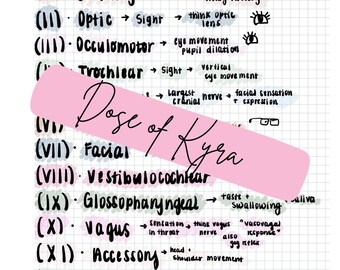 (II) · Optic → Sight → think optic lens
(III) · Occulomotor → eye movement pupil dilation
(IV) · Trochlear → Sight → vertical eye movement
largest cranial nerve → facial sensation + expression
Dose of Kyra
(VII) · Facial
(VIII) · Vestibulocochlear
(IX) · Glossopharyngeal → taste + swallowing
(X) · Vagus → sensation in throat → think vagus nerve "vasovagal response" also gag reflex
(XI) · Accessory → head + shoulder movement